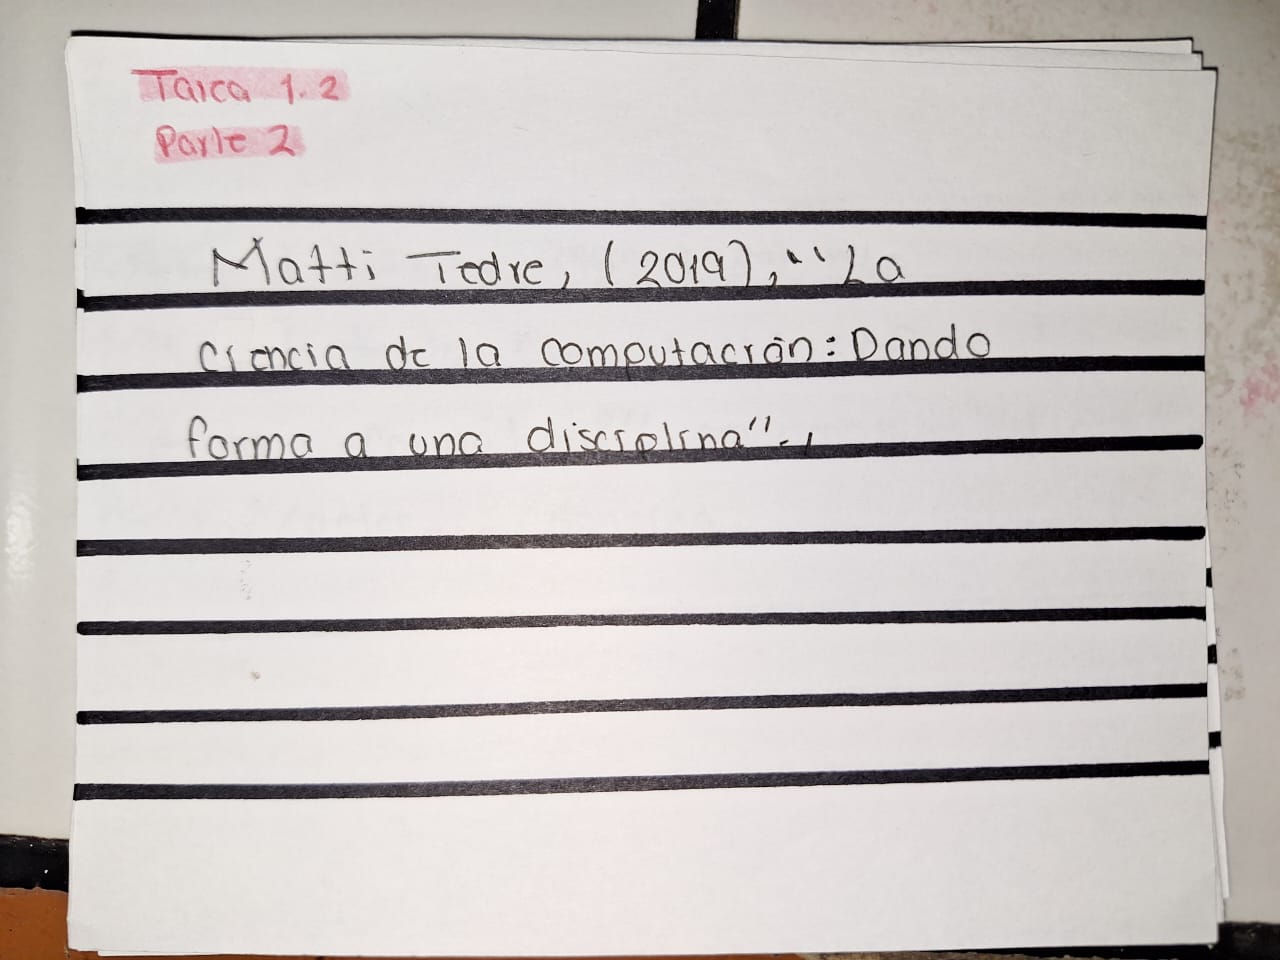 Tarea 1.2
Parte 2
Matti Tedre, (2019), “La
ciencia de la computación: Dando
forma a una disciplina”.,